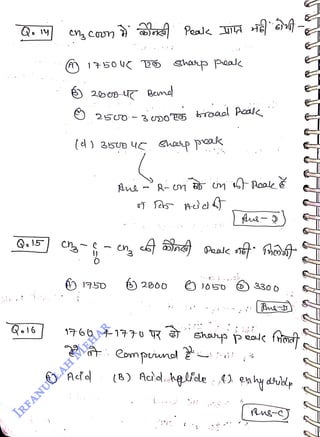 Q.14 CH3COOH में कौनसी Peak प्राप्त नहीं होगी -
(A) 1750 पर एक sharp peak
(B) 2800 पर Band
(C) 2500 - 3000 एक broad Peak
(d) 3500 पर sharp peak
Ans - R-OH के OH की Peak है
न कि Acid की
Ans - D
Q.15 CH3 - C - CH3 की कौनसी Peak नहीं मिलेगी
O
(A) 1750 (B) 2800 (C) 1050 (D) 3300
Ans - D
Q.16 1760 + 1770 पर दो sharp peak मिलती
है तो Compound है -
(A) Acid (B) Acid halide (C) anhydride
Ans - C
IRFANULLAH MEHAR